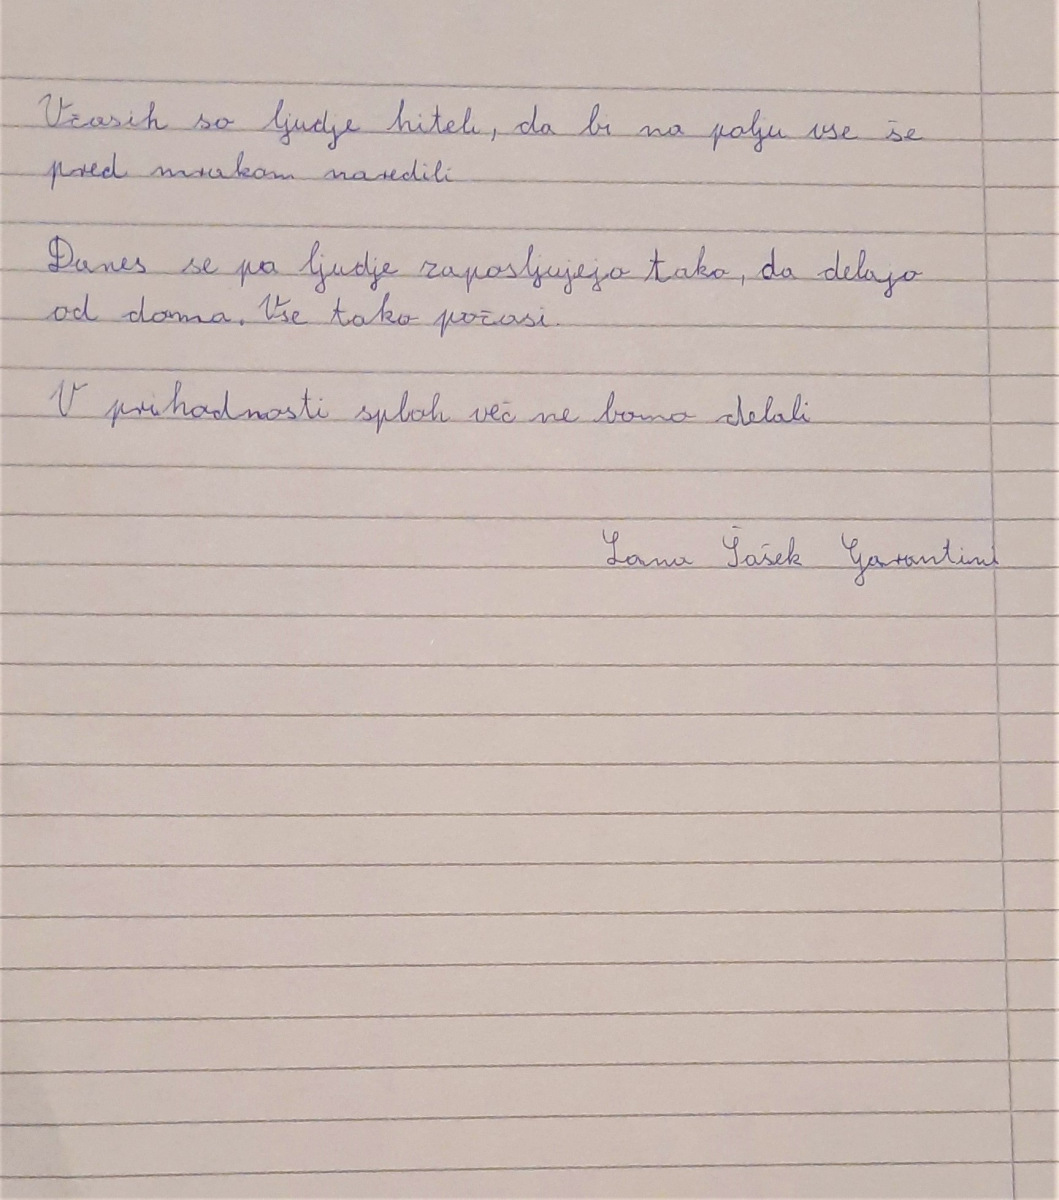 Včasih so ljudje hiteli, da bi na polju vse še
pred mrakom naredili
Danes se pa ljudje zaposljujejo tako, da delajo
od doma. Vse tako počasi.
V prihodnosti sploh več ne bomo delali
Lana Šašek Garantini